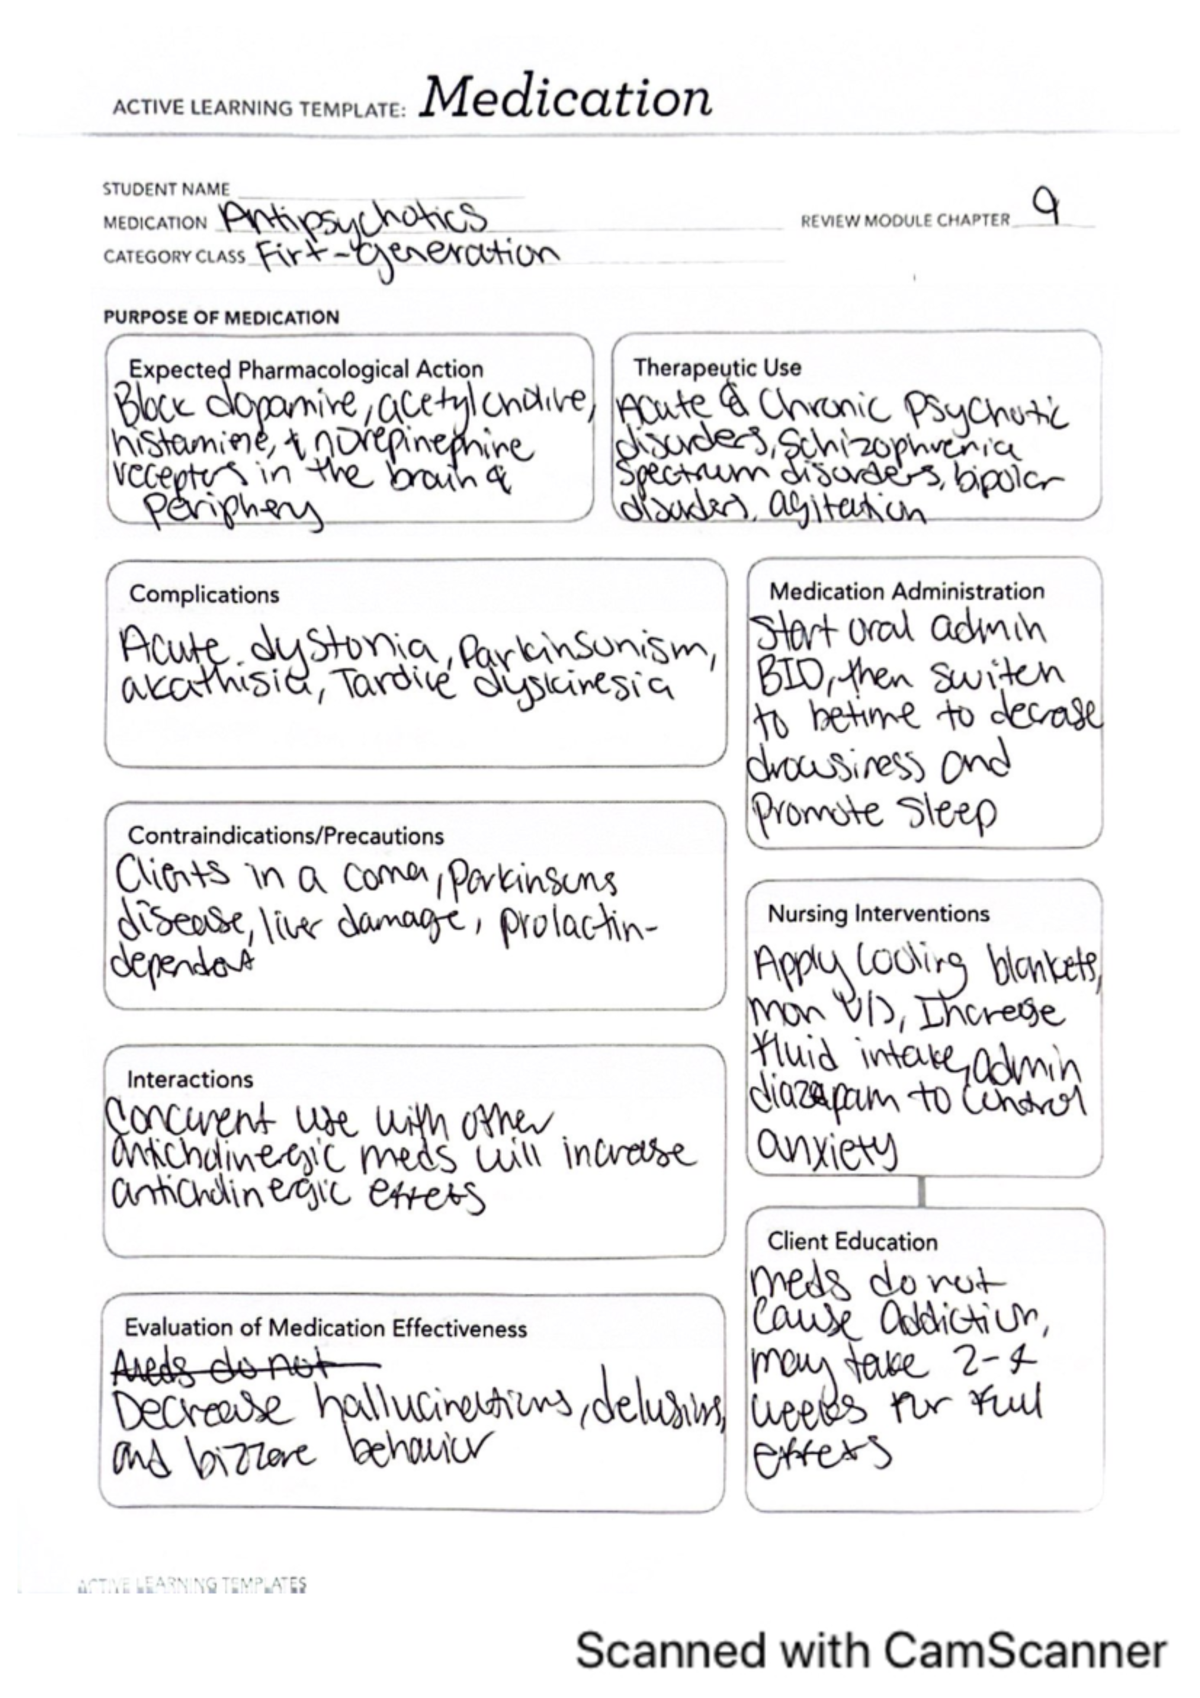 ACTIVE LEARNING TEMPLATE: Medication
STUDENT NAME
MEDICATION Antipsychotics
REVIEW MODULE CHAPTER 9
CATEGORY CLASS Firt-generation
PURPOSE OF MEDICATION
Expected Pharmacological Action
Block dopamine, acetylcholive,
histamine, & norepinephrine
receptors in the brain &
Periphery
Therapeutic Use
Acute & Chronic Psychotic
disorders, Schizophrenia
Spectrum disorders, bipolar
disorders, agitation
Complications
Acute dystonia, Parkinsonism,
akathisia, Tardive dyskinesia
Medication Administration
Start oral admin
BID, then switch
to betime to decrase
drowsiness and
Promote sleep
Contraindications/Precautions
Clients in a coma, Parkinsons
disease, liver damage, prolactin-
dependent
Nursing Interventions
Apply cooling blankets,
mon V/S, Increase
fluid intake, admin
diazepam to control
anxiety
Interactions
Concurent use with other
anticholinergic meds will increase
anticholinergic effets
Client Education
Meds do not
Cause Addiction,
may take 2-4
weeks for full
effets
Evaluation of Medication Effectiveness
Meds do not
Decrease hallucinations, delusions,
and bizzare behavior
ACTIVE LEARNING TEMPLATES
Scanned with CamScanner